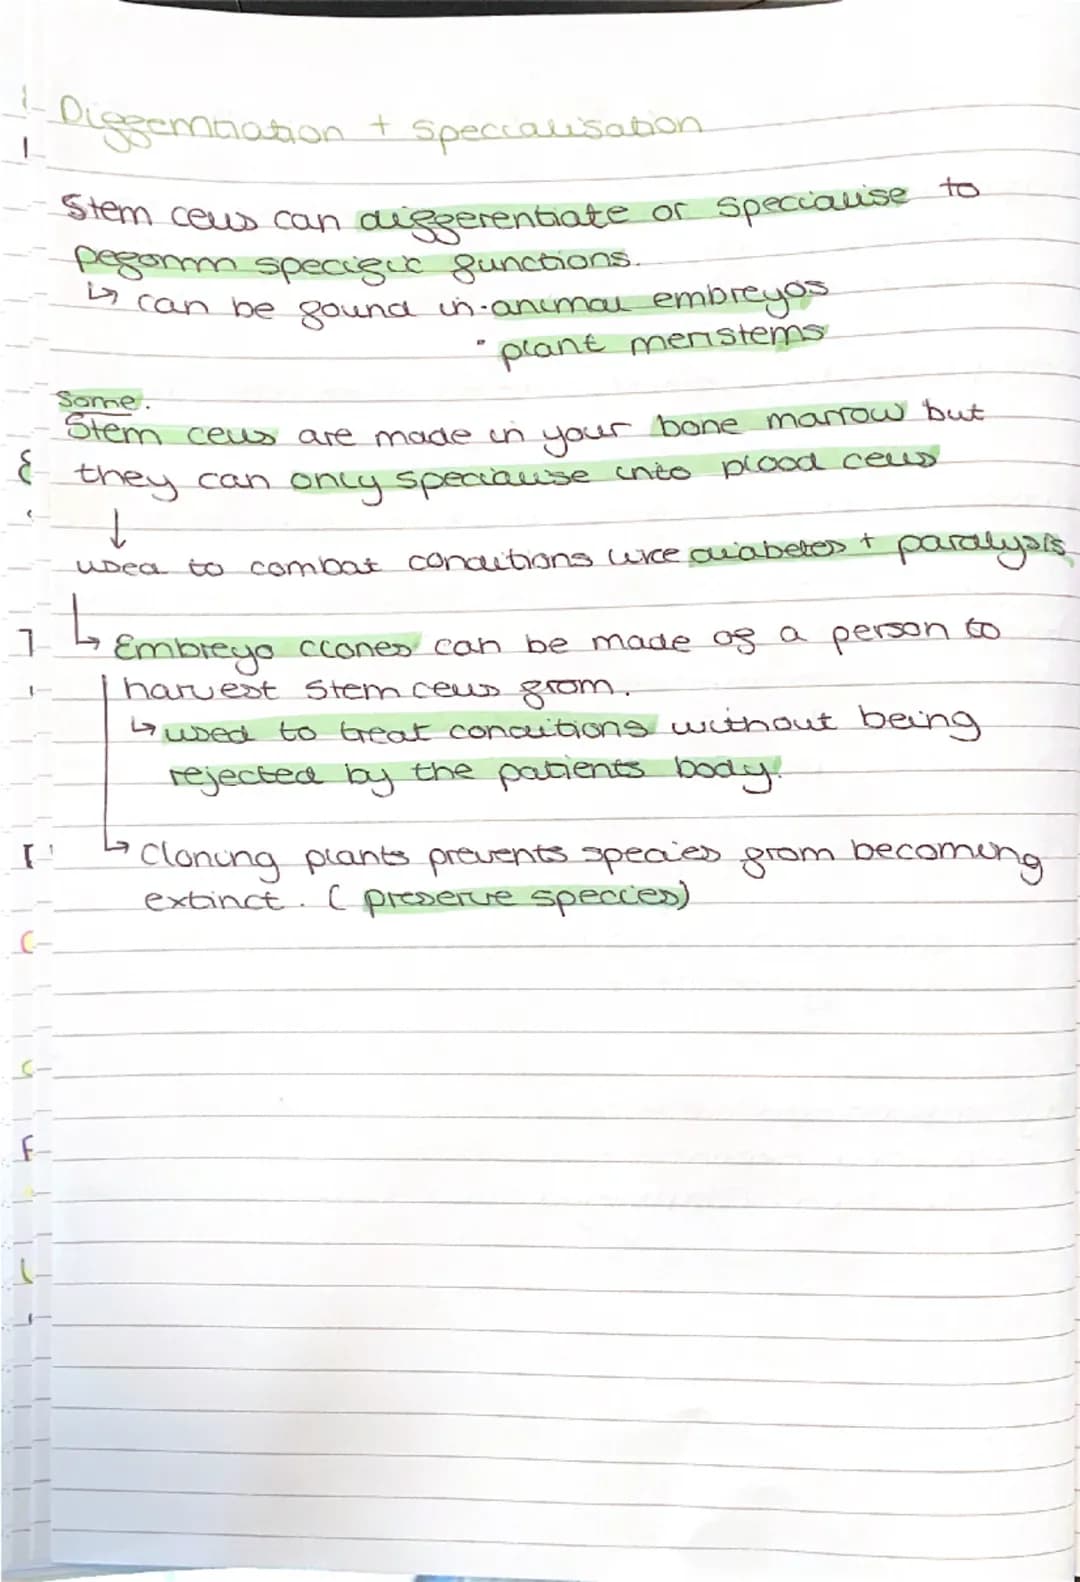 Differentiation + Specialisation
Stem cells can differentiate or specialise to
peform specific functions.
↳ can be found in · animal embreyos
· plant meristems
Some.
Stem cells are made in your bone marrow but
they can only specialise into blood cells
↓
used to combat conditions like diabetes + paralysis
↳ Embreyo clones can be made of a person to
harvest stem cells from.
↳ used to treat conditions without being
rejected by the patients body.
↳ Cloning plants prevents species from becoming
extinct. (preserve species)